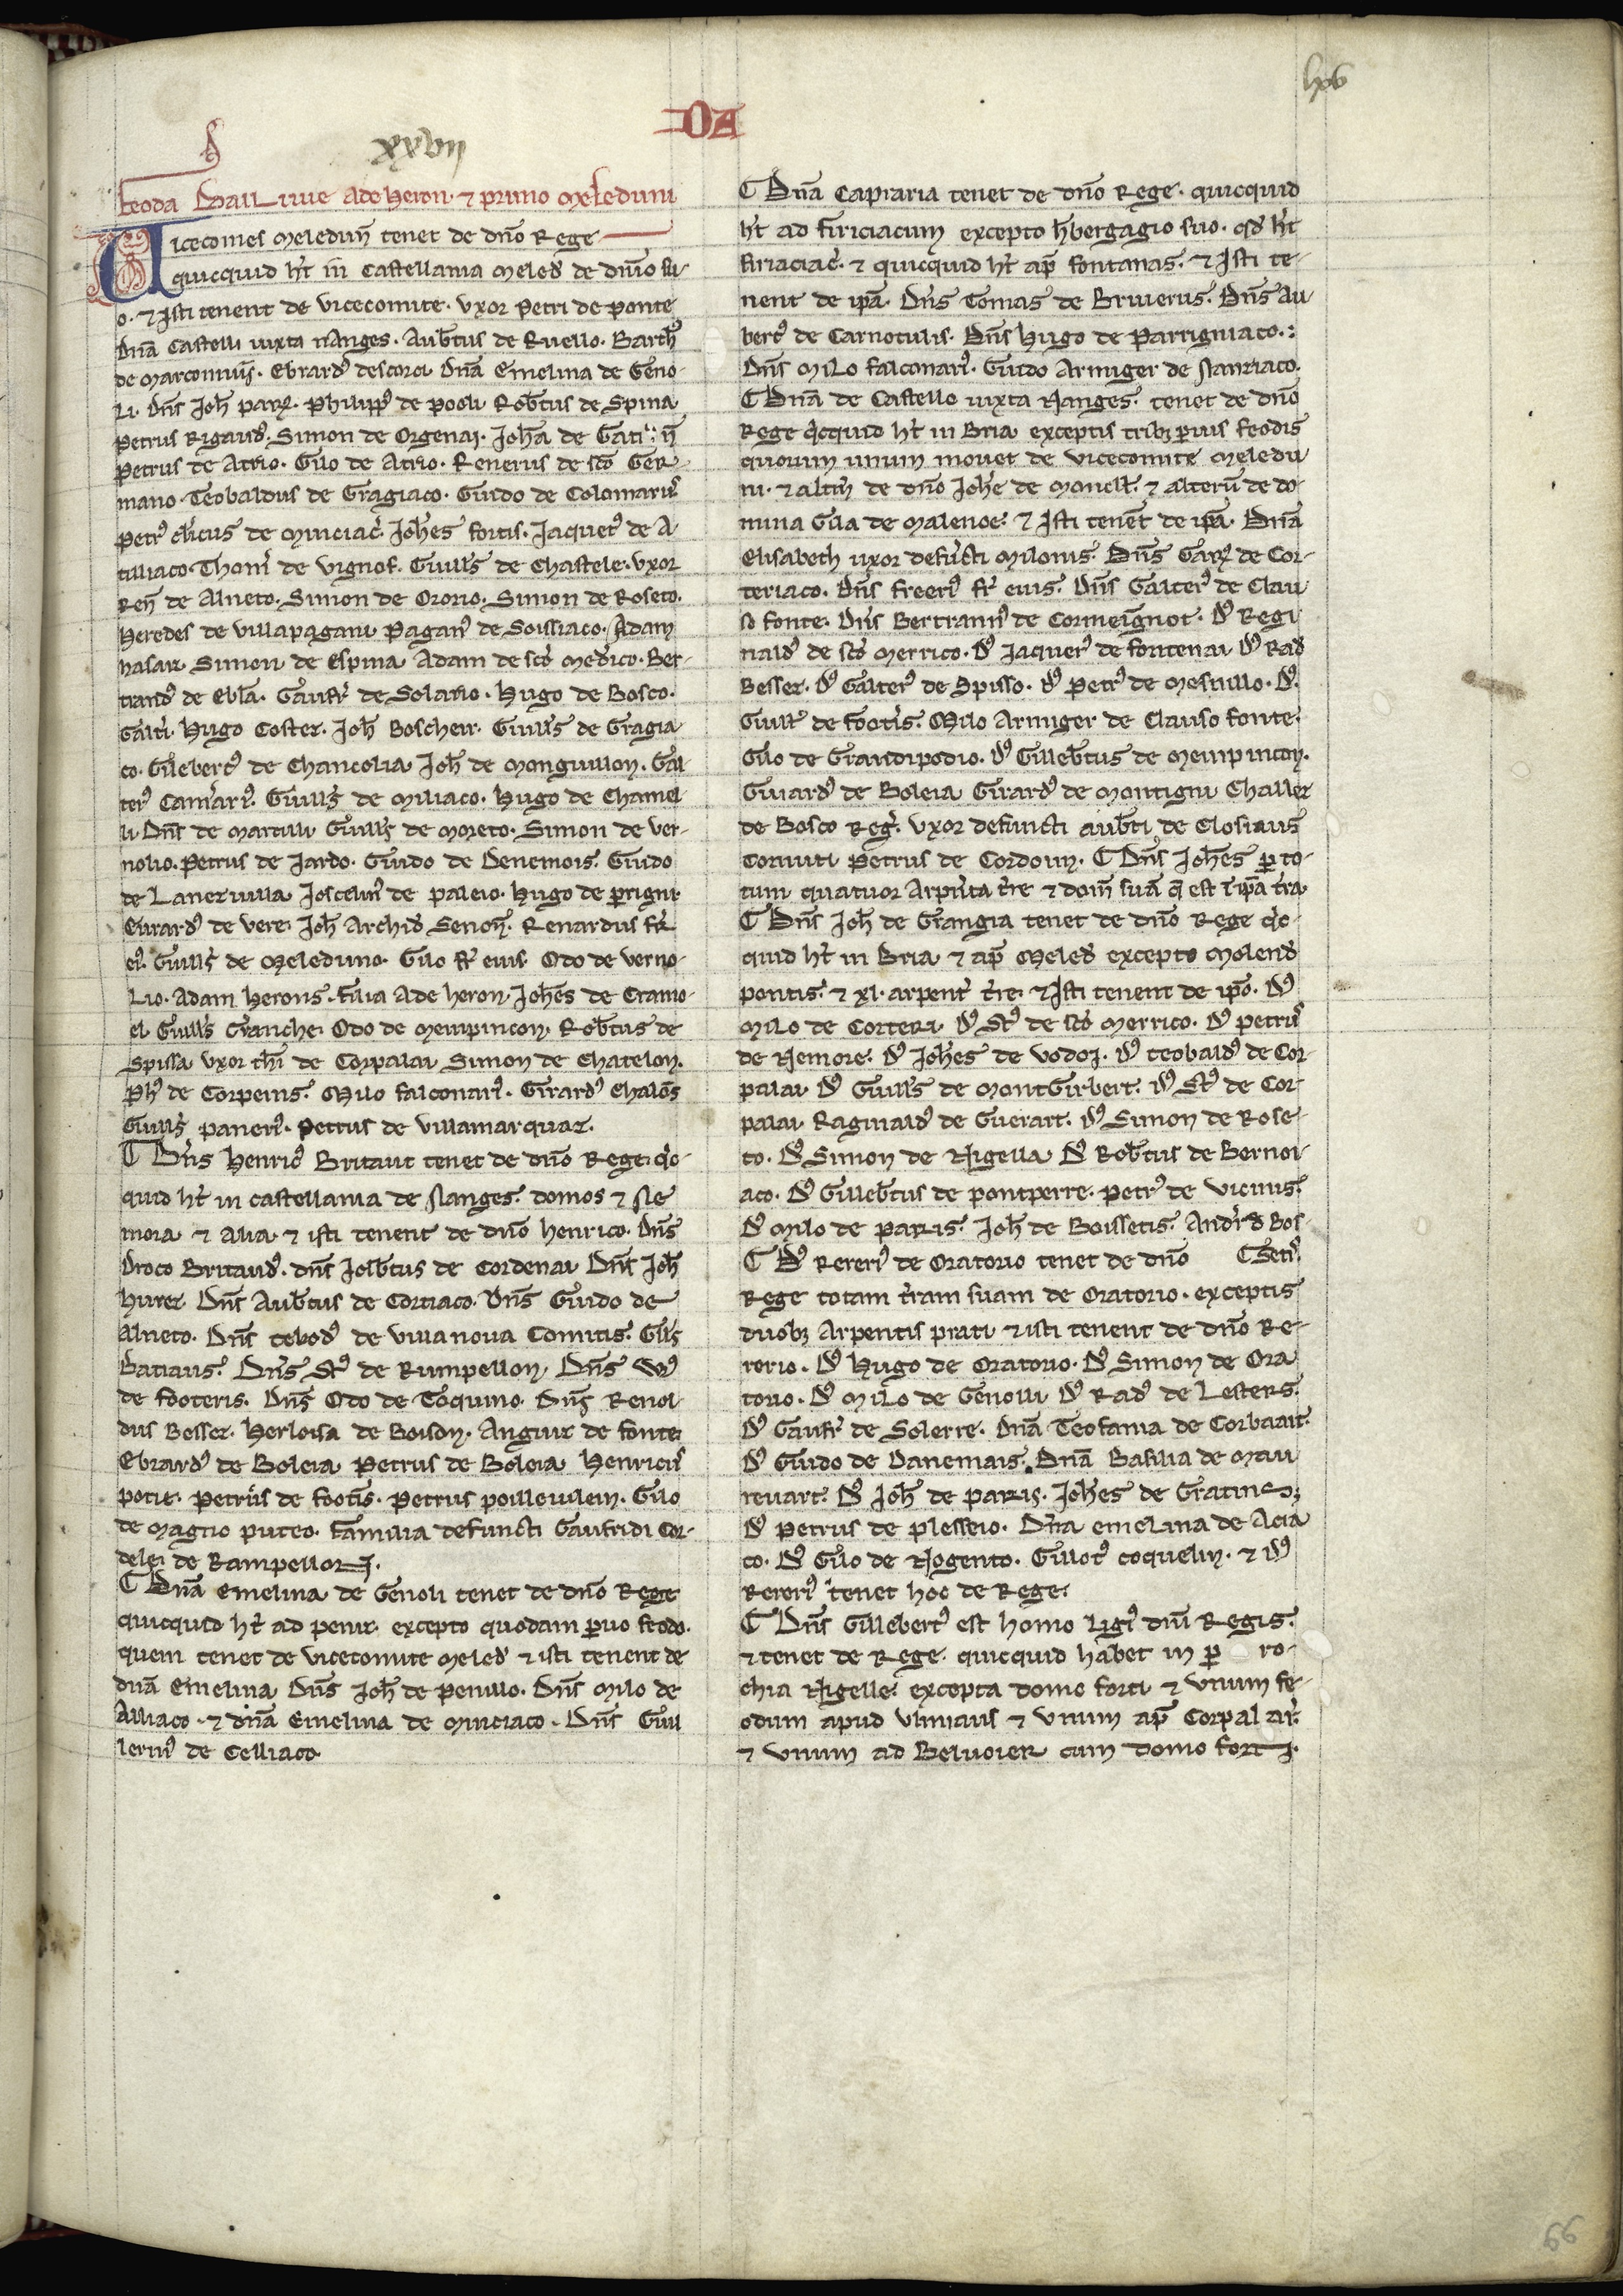 lxv
OA
xxvii
feoda Baillivie Ade Heron. et primo Meleduni
Vicecomes Meledun̄ tenet de dn̄o Rege
quicquid ht̄ in Castellania Meled̄ de dn̄io su-
o. ⁊ Isti tenent de vicecomite. Uxor Petri de Ponte
Dn̄a Castelli iuxta nAnges. Aub̄tus de Ruello. Barth̄
de Marcomin̄s. Ebrard᾿ descorci Dn̄a Emelina de Geno-
li. Dn̄s Joh̄ pariꝫ. Philipp᾿ de pooli Rob̄tus de Spina
Petrus Rigaud᾿. Simon de Orgenai. Joh̄a de Gati
Petrus de Atrio. Guo de Atrio. Renerus de sc̄o Ger-
mano. Teobaldus de Gragiaco. Guido de Colomariis
Petr᾿ cl̄icus de Minciac̄. Joh̄es fortis. Jaquet᾿ de A-
tilliaco. Thom̄ de vignol. Guill̄s de Chastele. Uxor
Ren̄ de Alneto. Simon de Ororio. Simon de Roseto.
Heredes de villapagani Pagan᾿ de Soissiaco. Adam
hasair Simon de Espina Adam de sc̄o Med̄ico. Ber-
trand᾿ de Ebl̄a. Gaufr̄ de Solario. Hugo de Bosco.
Galt̄i. Hugo Coster. Joh̄ Boscheir. Guill̄s de Gragia-
co. Gillebert᾿ de Chancolia Joh̄ de Monguillon. Gal-
ter᾿ Cam̄ari᾿. Guill̄s de Miliaco. Hugo de Chamel-
li. Dn̄s de Martilli Guill̄s de Moreto. Simon de Ver-
nolio. Petrus de Jardo. Guido de Denemois. Guido
de Lanervilla Joscelin᾿ de paleio. Hugo de prigni.
Eurard᾿ de vere. Joh̄ Archid̄ Senon̄. Renardus fr̄
ei᾿. Guill̄s de Meleduno. Guo fr̄ eius. Odo de verno-
lio. Adam herons. filia Ade heron. Joh̄es de Cramo-
el. Guill̄s Granche. Odo de Mempincon. Rob̄tus de
Spissa Uxor th̄i de Corpalai Simon de Chatelon.
Ph᾿ de Corpeins. Milo falconari᾿. Girard᾿ Chalōs
Guill̄s paneri᾿. Petrus de villamarquaz.
⁋ Dn̄s Henric᾿ Britaut tenet de dn̄o Rege. q̄c-
quid ht̄ in castellania de Nanges. domos ⁊ Ne-
mora ⁊ alia ⁊ isti tenent de dn̄o henrico. Dn̄s
Droco Britaud᾿. dn̄s Joſb̄tus de Cordenai Dn̄s Joh̄
hurer. Dn̄s Aub̄tus de Cortiaco. Dn̄s Guido de
Alneto. Dn̄s tebod᾿ de villanova Comitis. Gil̄s
batiaus. Dn̄s St᾿ de Rumpellon. Dn̄s W᾿
de footeris. Dn̄s Odo de Toquino. Dn̄s Renol-
dus Besser. Herloisa de Boison. Anguir de fonte
Ebrard᾿ de Boleia Petrus de Boleia Henricus
potie. Petrus de foot̄is. Petrus poilleuilein. Guo
de magno puteo. Familia defuncti Gaufridi Cor-
delei de Rampellon.
⁋ Dn̄a Emelina de Genoli tenet de dn̄o Rege
quicquid ht̄ ad penit. excepto quodam ꝑuo feodo.
quem tenet de vicecomite Meled̄ ⁊ isti tenent de
dn̄a Emelina Dn̄s Joh̄ de Penillo. Dn̄s Milo de
Alliaco. ⁊ dn̄a Emelina de Minciaco. Dn̄s Guil-
lerm᾿ de Celliaco
⁋ Dn̄a Capraria tenet de dn̄o Rege. quicquid
ht̄ ad firiciacum excepto h̄bergagio suo. qd̄ ht̄
firiaciac̄. ⁊ quicquid ht̄ ap̄ fontanas. ⁊ Isti te-
nent de ip̄a. Dn̄s Tomas de Briuerus. Dn̄s Au-
bert᾿ de Carnotulis. Dn̄s Hugo de Parrigniaco.
Dn̄s Milo falconari᾿. Guido Armiger de Nanriaco.
⁋ Dn̄a de Castello iuxta Nanges. tenet de dn̄o
Rege q̄cquid ht̄ in Bria exceptis tribꝫ ꝑuis feodis
quorum unum movet de vicecomite Meledu-
ni. ⁊ alt̄m de dn̄o Joh̄e de Monelt. ⁊ alterū de do-
mina Gila de Malence. ⁊ Isti tenēt de ip̄a. Dn̄a
Elisabeth uxor defūcti Milonis. Dn̄s Gariꝫ de Cor-
teriaco. Dn̄s freeri᾿ fr̄ eius. Dn̄s Galter᾿ de Clau-
so fonte. Dn̄s Bertrann᾿ de Cormeignot. D᾿ Regi-
nald᾿ de sc̄o Merrico. D᾿ Jaquer᾿ de fontenai D᾿ Rad᾿
Besser. D᾿ Galter᾿ de Spisso. D᾿ Petr᾿ de Mesnillo. D᾿.
Guill̄ de foot̄is. Milo Armiger de Clauso fonte.
Guo de Grandipodio. D᾿ Gilleb̄tus de Mempincon.
Guiard᾿ de Boleia Girard᾿ de Montigni Challer
de Bosco Reḡ. Uxor defuncti aub̄ti de Closiaus
Cornuti Petrus de Cordoin. ⁋ Dn̄s Joh̄es ꝑ to-
tum quatuor Arpēta t̄re ⁊ dom̄ suā q̄ est ī ip̄a t̄ra
⁋ Dn̄s Joh̄ de Grangia tenet de dn̄o Rege q̄c-
quid ht̄ in Bria ⁊ ap̄ Meled̄ excepto Molend̄
pontis. ⁊ xl. arpent̄ t̄re. ⁊ Isti tenent de ip̄o. D᾿
Milo de Corteri D᾿ St᾿ de sc̄o Merrico. D᾿ Petrus
de Nemore. D᾿ Joh̄es de vodoi. D᾿ teobald᾿ de Cor-
palai D᾿ Guill̄s de MontGirbert. D᾿ St᾿ de Cor-
palai Raginald᾿ de Guerart. D᾿ Simon de Rose-
to. D᾿ Simon de Nigella D᾿ Rob̄tus de Bernoi-
aco. D᾿ Gilleb̄tus de pontperre. Petr᾿ de vicinis.
D᾿ Milo de paris. Joh̄ de Boissetis. Andr̄ d̄ Bos-
⁋ D᾿ Rereri᾿ de Oratorio tenet de dn̄o ⁋ seti᾿.
Rege totam t̄ram suam de Oratorio. exceptis
duobꝫ Arpentis prati ⁊ isti tenent de dn̄o Re-
rerio. D᾿ Hugo de Oratorio. D᾿ Simon de Ora-
torio. D᾿ Milo de Genolli D᾿ Rad᾿ de Lesters.
D᾿ Gaufr̄ de Solerre. Dn̄a Teofania de Corbaait.
D᾿ Guido de Danemais. Dn̄a Basilia de Mau-
revart. D᾿ Joh̄ de paris. Joh̄es de Gratin
D᾿ Petrus de plesseio. Dn̄a emelina de Acia-
co. D᾿ Guo de Nogento. Gillot᾿ coquelin. ⁊ D᾿
Rereri᾿ tenet hoc de Rege.
⁋ Dn̄s Gillebert᾿ est homo Ligi᾿ dn̄i Regis.
⁊ tenet de Rege. quicquid habet in ꝑ ro-
chia Nigelle. excepta domo forti ⁊ unum fe-
odum apud Ulmiaus ⁊ Unum ap̄ Corpalai.
⁊ unum ad Belvoier cum domo forti.
66